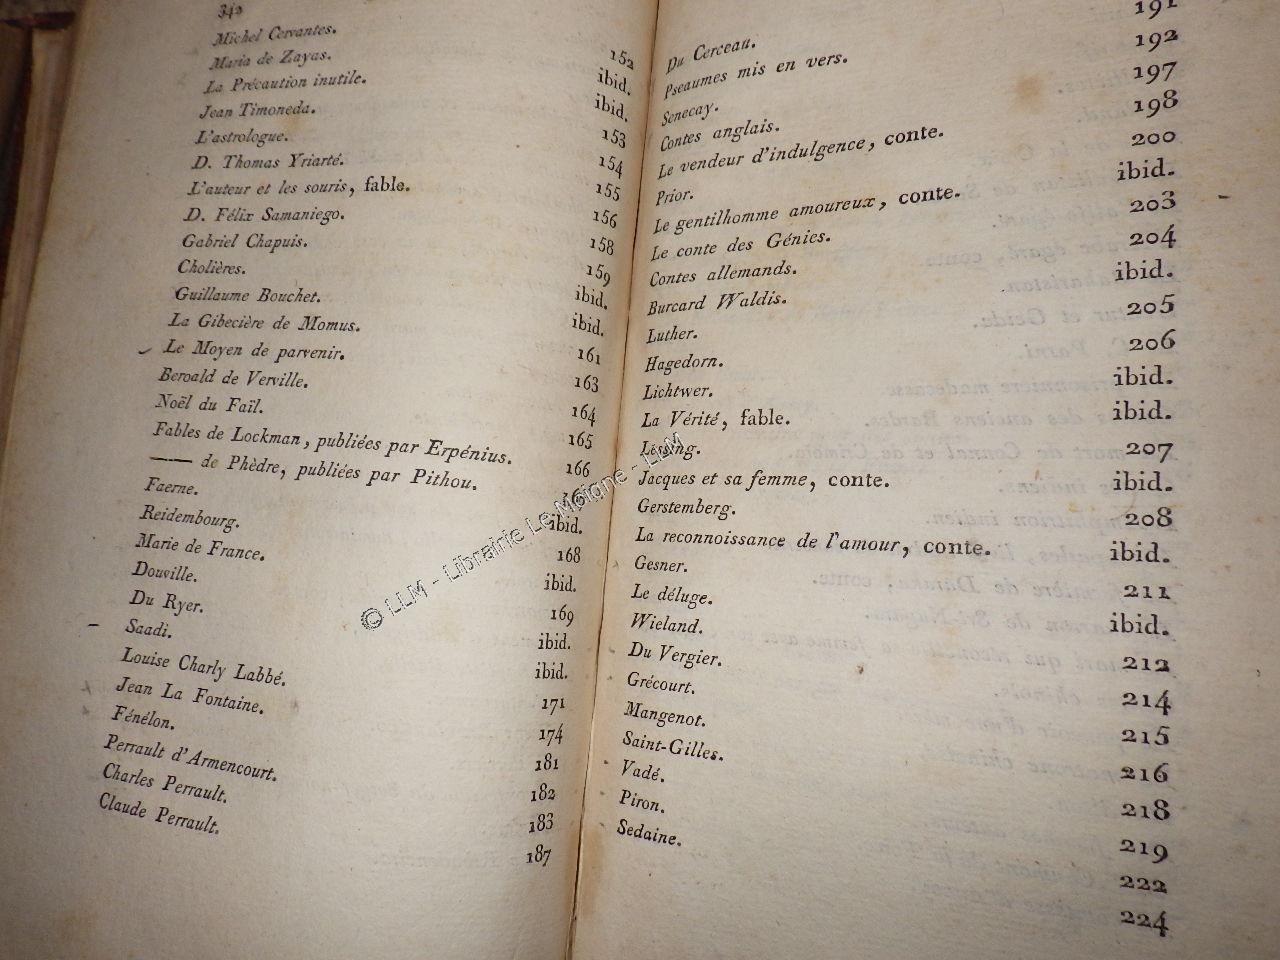 342
Michel Cervantes. 152
Maria de Zayas. ibid.
La Précaution inutile. ibid.
Jean Timoneda. 153
L'astrologue. 154
D. Thomas Yriarté. 155
L'auteur et les souris, fable. 156
D. Félix Samaniego. 158
Gabriel Chapuis. 159
Cholières. ibid.
Guillaume Bouchet. ibid.
La Gibecière de Momus. 161
Le Moyen de parvenir. 163
Beroald de Verville. 164
Noël du Fail. 165
Fables de Lockman, publiées par Erpénius. 166
—— de Phèdre, publiées par Pithou.
Faerne. ibid.
Reidembourg. 168
Marie de France. ibid.
Douville. 169
Du Ryer. ibid.
Saadi. ibid.
Louise Charly Labbé. 171
Jean La Fontaine. 174
Fénélon. 181
Perrault d'Armencourt. 182
Charles Perrault. 183
Claude Perrault. 187
Du Cerceau.
Pseaumes mis en vers. 191
Senecay. 192
Contes anglais. 197
Le vendeur d'indulgence, conte. 198
Prior. 200
Le gentilhomme amoureux, conte. ibid.
Le conte des Génies. 203
Contes allemands. 204
Burcard Waldis. ibid.
Luther. 205
Hagedorn. 206
Lichtwer. ibid.
La Vérité, fable. ibid.
Lessing. 207
Jacques et sa femme, conte. ibid.
Gerstemberg. 208
La reconnoissance de l'amour, conte. ibid.
Gesner. 211
Le déluge. ibid.
Wieland. 212
Du Vergier. 214
Grécourt. 215
Mangenot. 216
Saint-Gilles. 218
Vadé. 219
Piron. 222
Sedaine. 224
© LLM - Librairie Le Moiane - LLM